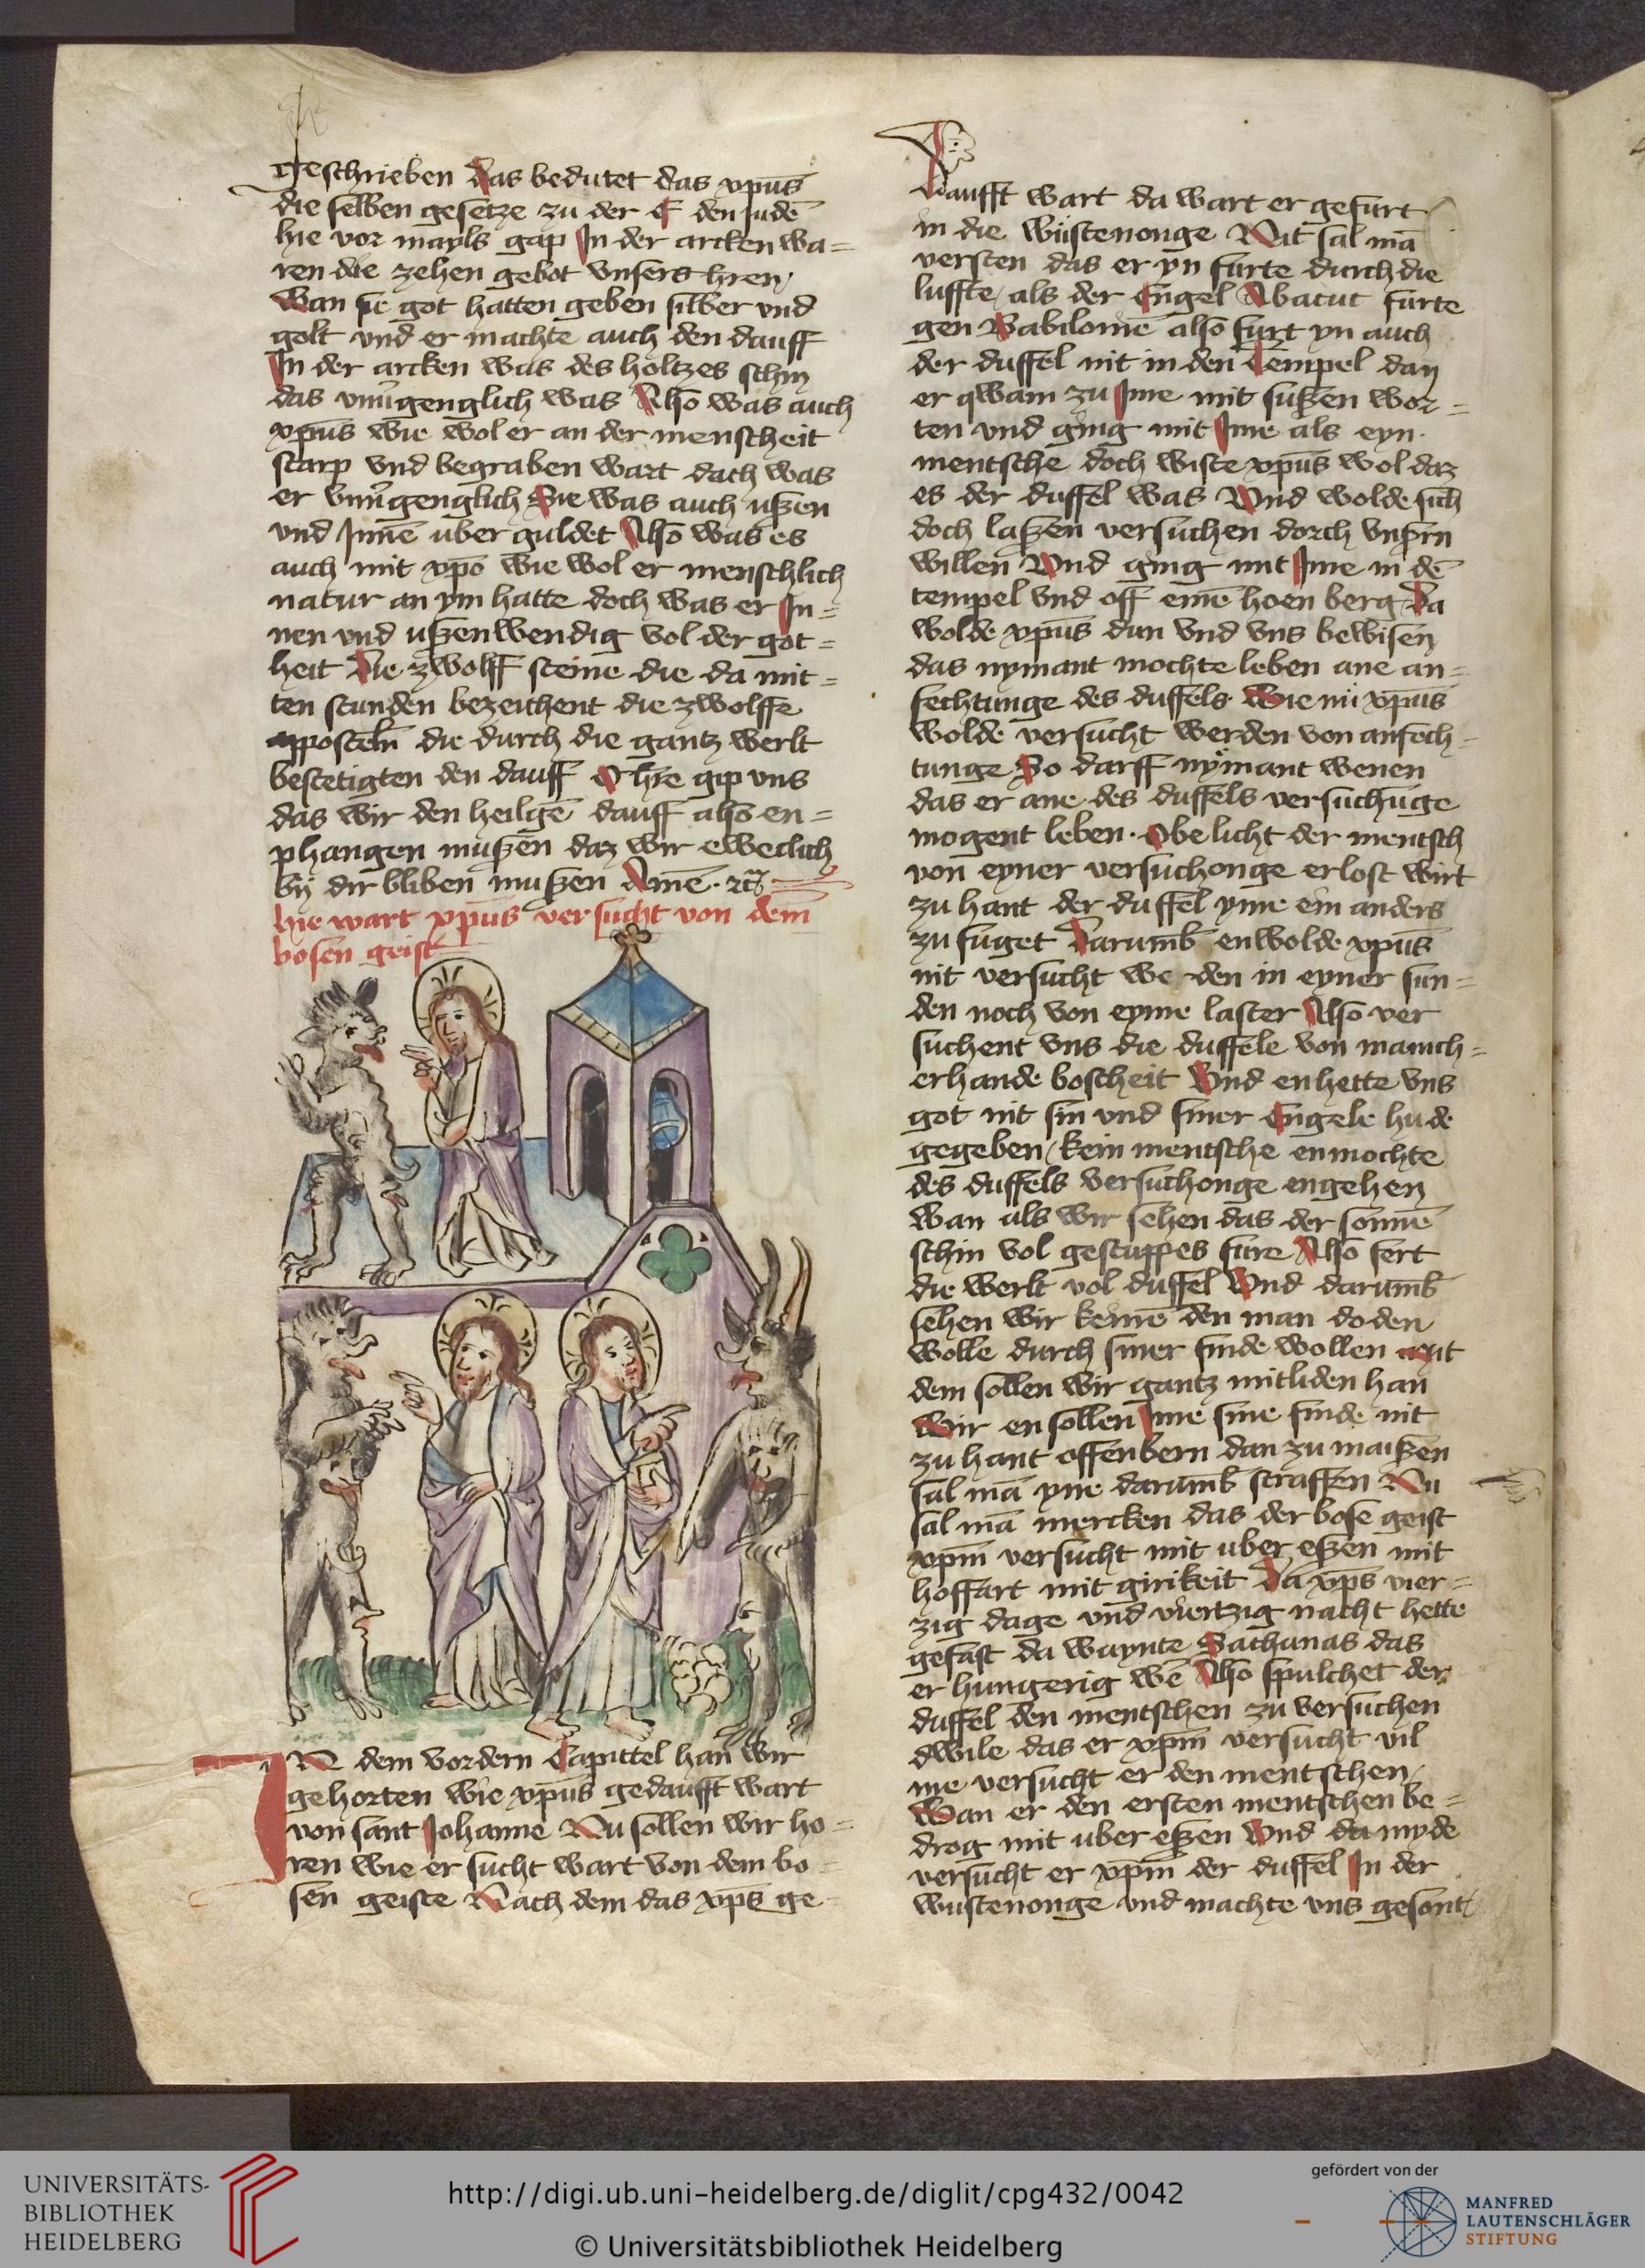 Geschrieben das bedutet das xpūs
die selben gesetze zu der E den judē
hie vor mayls gap In der arcken wa=
ren die zehen gebot vnsers hren
Wan sie got hatten geben silber vnd
golt vnd er machte auch den dauff
In der arcken was des holtzes schin
das vnūgenglich was Also was auch
xpūs wie wol er an der menscheit
starp vnd begraben wart dach was
er vnūgenglich Sie was auch ußen
vnd Innē uber guldet Also was es
auch mit xpō wie wol er menschlich
natur an ym hatte doch was er In=
nen vnd ußenwendig vol der got=
heit Die zwolff steine die da mit=
ten stunden bezeichent die zwolffe
appostelñ die durch die gantz werlt
bestetigten den dauff O hre gip vns
das wir den heilgē dauff also en=
phangen mußen daz wir eweclich
by dir bliben mußen Amē
hie wart xpūs versucht von dem
bosen geist
IN dem vordern Capittel han wir
gehorten wie xpūs gedaufft wart
von sant Johanne Nu sollen wir ho=
ren wie er sucht wart von dem bo=
sen geiste Nach dem das xpūs ge
daufft wart da wart er gefurt
in die wüstenonge Nit sal mā
versten das er yn furte durch die
luffte als der Engel Abacut furte
gen Babilonie also furt yn auch
der duffel nit in den Tempel dan
er qwam zu Ime mit sußen wor=
ten vnd ging mit Ime als eyn
mentsche doch wiste xpūs wol daz
es der duffel was Vnd wolde sich
doch laßen versuchen dorch vnsrn
willen Vnd ging mit Ime in dē
tempel vnd off eimē hoen berg Da
wolde xpūs dan vnd vns bewisen
das nymant mochte leben ane an=
fechtunge des duffels Wie nu xpūs
wolde versucht werden von anfech=
tunge So darff nymant wenen
das er ane des duffels versuchuge
mogent leben Obe licht der mentsch
von eyner versuchonge erlost wirt
zu hant der duffel yme ein anders
zu fuget Darumb enwolde xpūs
nit versucht werden in eyner sun=
den noch von eyme laster Also ver
suchent vns die duffele von manich=
erhande boscheit Vnd enhette vns
got nit sin vnd siner Engele hude
gegeben kein mentsche enmochte
des duffels versuchonge engehen
Wan als wir sehen das der sonnē
schin vol gestuppes fure Also fert
die werlt vol duffel Vnd darumb
sehen wir keinē den man doden
wolle durch siner sinde wollen mit
dem sollen wir gantz mitliden han
Wir en sollen Ime sine sinde nit
zu hant offenbern dan zu maißen
sal mā yne darumb straffen Nu
sal mā mercken das der bose geist
xpm versucht mit uber eßen mit
hoffart mit girikeit Da xps vier=
zig dage vnd viertzig nacht hette
gefast da waynte Sathanas das
er hungerig we Also spulchet der
duffel den mentschen zu versuchen
dwile das er xpm versucht vil
me versucht er den mentschen
Wan er den ersten mentschen be=
drog mit uber eßen Vnd da myde
versucht er xpm der duffel In der
wustenonge vnd machte vns gesont
UNIVERSITÄTS-
BIBLIOTHEK
HEIDELBERG
http://digi.ub.uni-heidelberg.de/diglit/cpg432/0042
© Universitätsbibliothek Heidelberg
gefördert von der
MANFRED
LAUTENSCHLÄGER
STIFTUNG